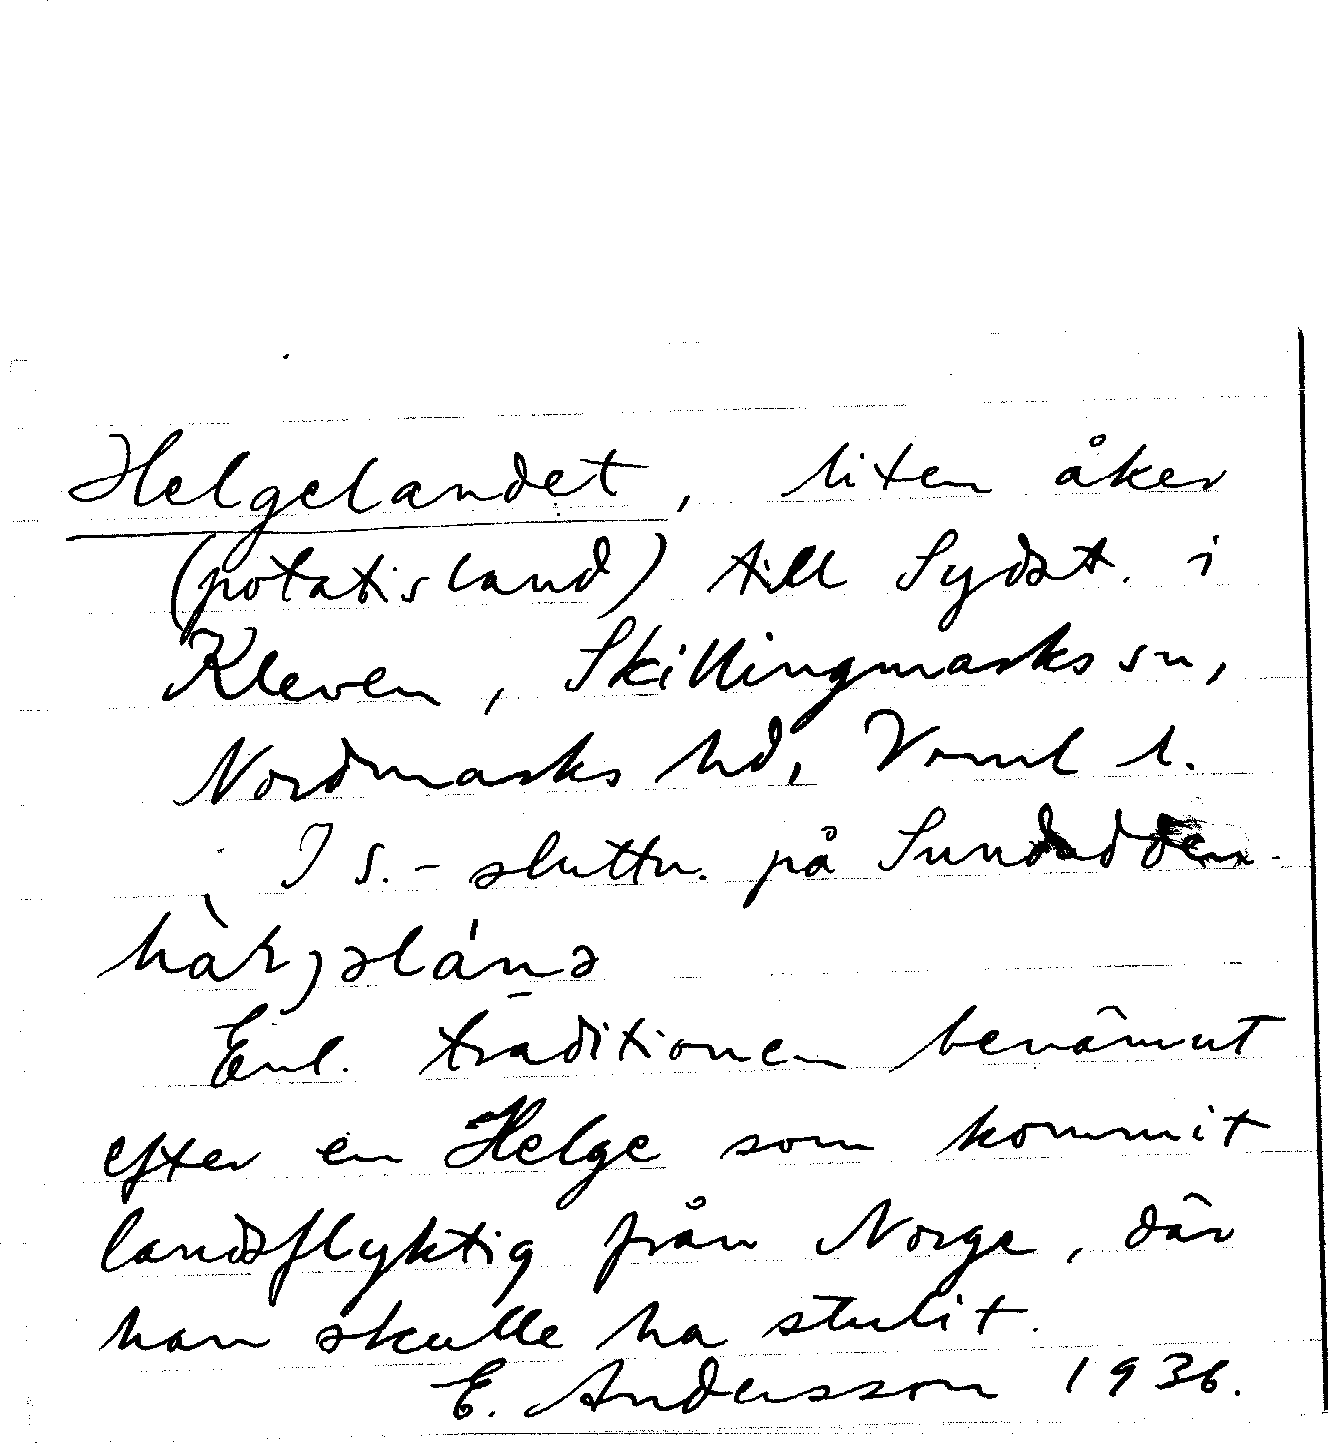 Helgelandet, liten åker
(potatisland) till Sydst. i
Kleven, Skillingmarks sn,
Nordmarks hd, Värml l.
I S.-sluttn. på
Enl. traditionen benämnt
efter en Helge som kommit
landsflyktig från Norge, där
han skulle ha stulit.
E. Andersson 1936.